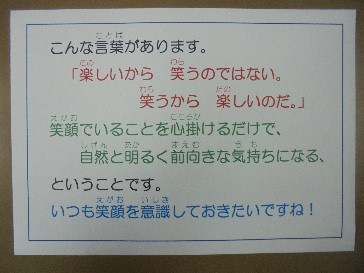 こんな言葉があります。
「楽しいから 笑うのではない。
笑うから 楽しいのだ。」
笑顔でいることを心掛けるだけで、
自然と明るく前向きな気持ちになる、
ということです。
いつも笑顔を意識しておきたいですね！